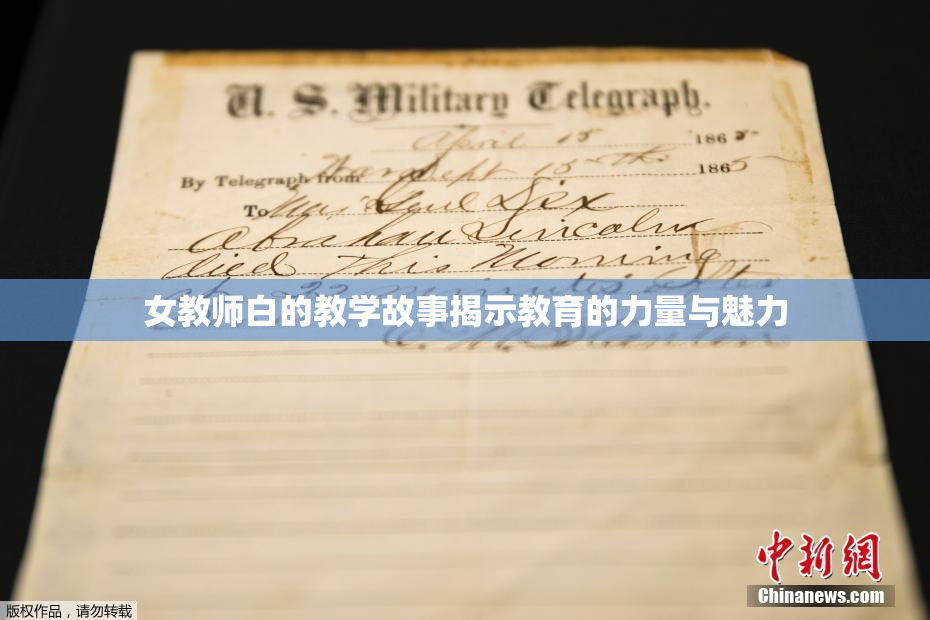 U. S. Military Telegraph.
April 15 1865
By Telegraph from War Dept 15th 1865
To Maj Genl Dix
Abraham Lincoln
died This Morning
22 minutes after
女教师白的教学故事揭示教育的力量与魅力
E. M. Stanton
中新网
Chinanews.com
版权作品,请勿转载